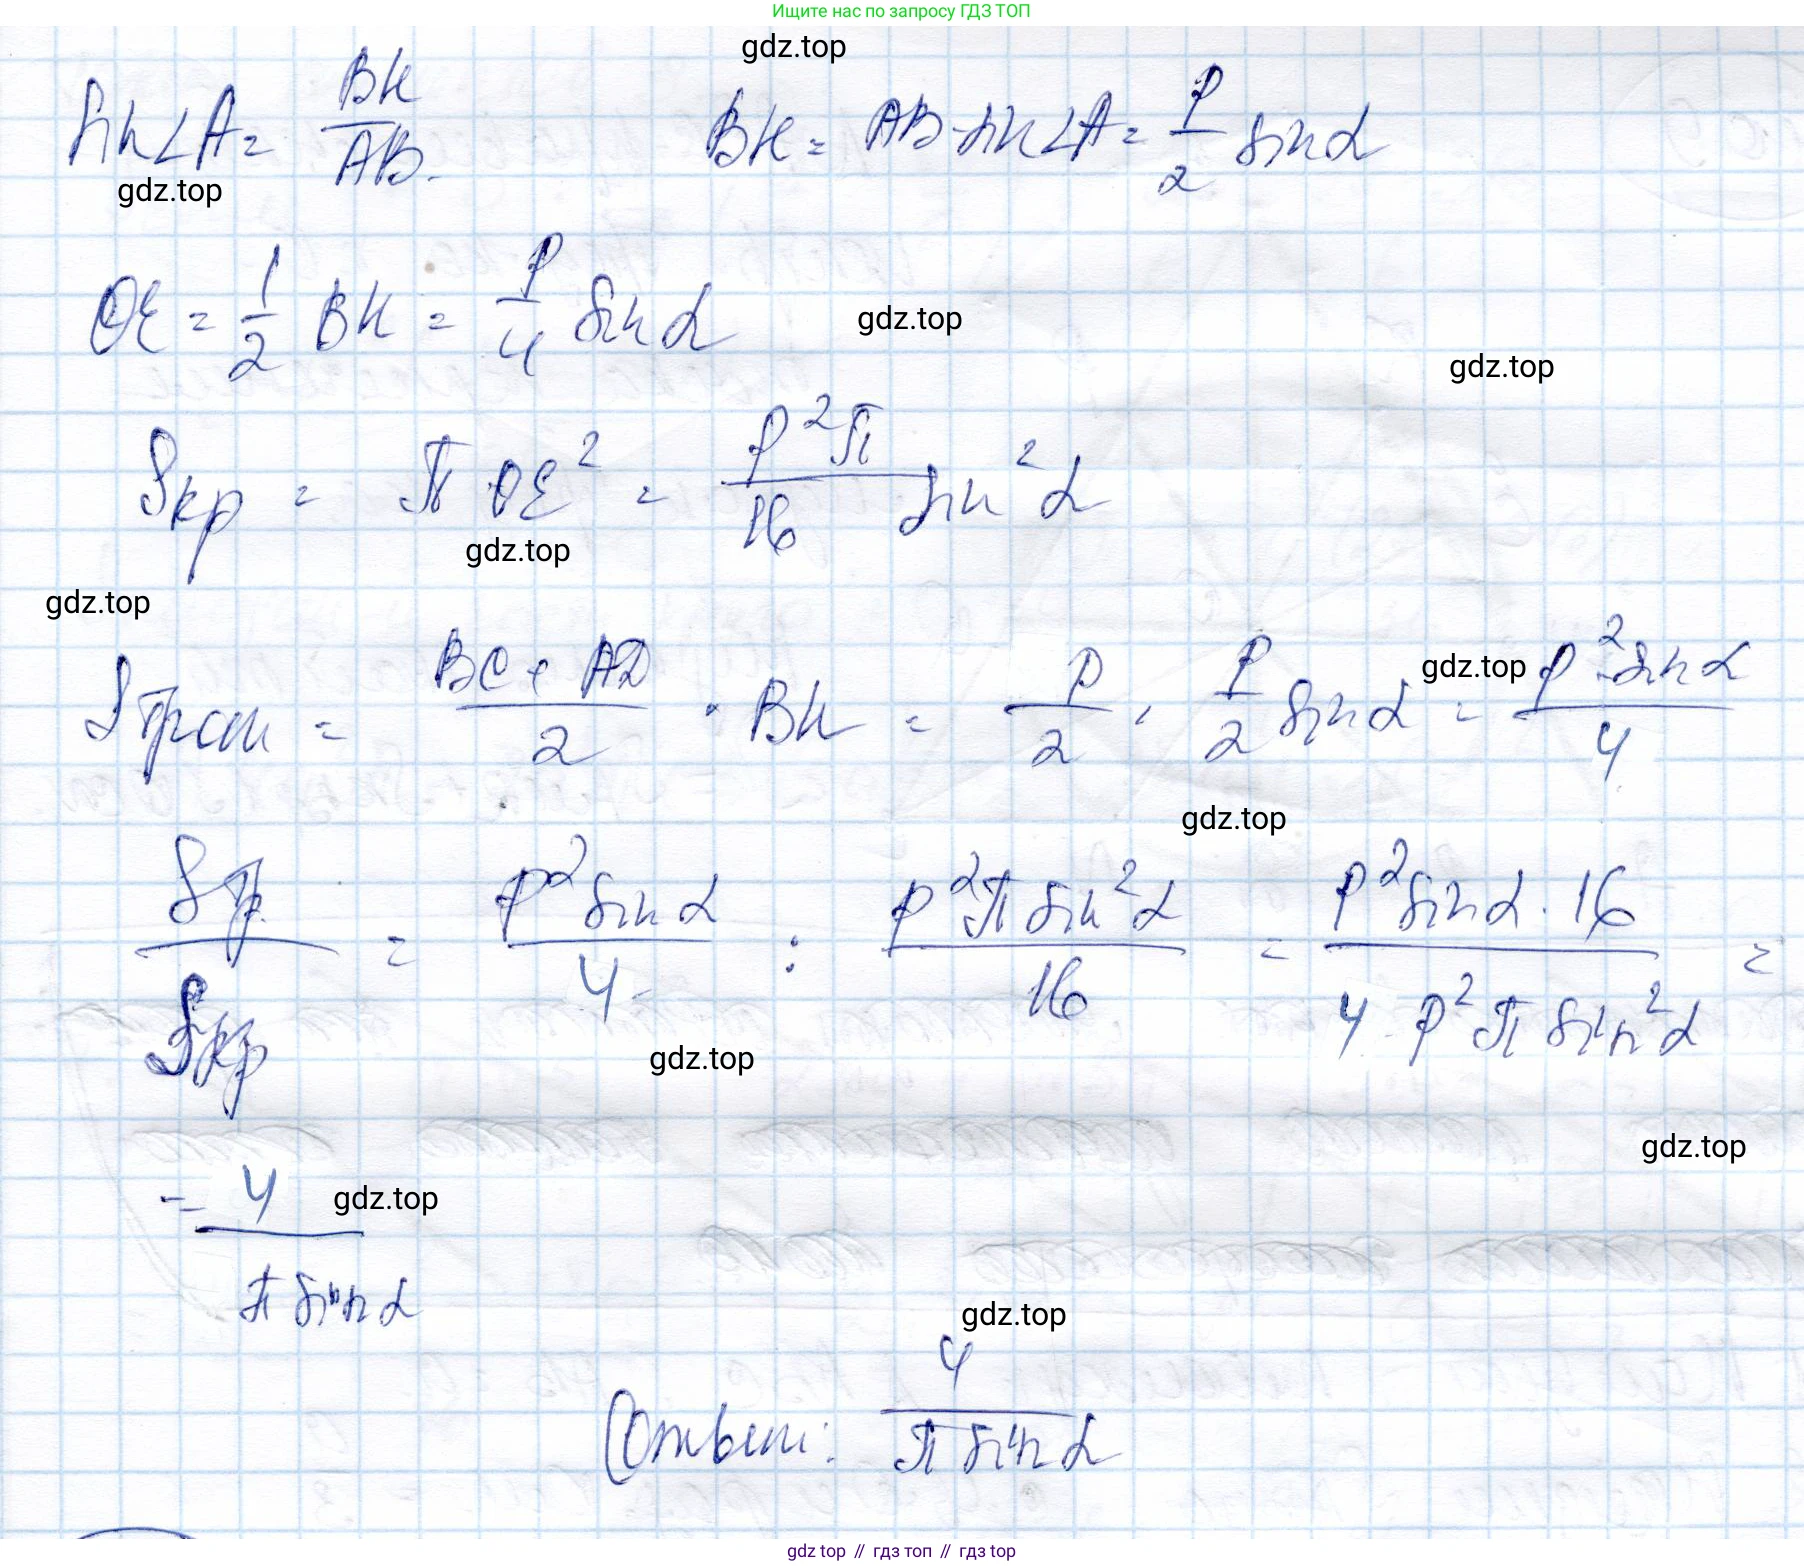 Ищите нас по запросу ГДЗ ТОП
gdz.top
sin∠A = BK/AB. BK = AB·sin∠A = P/2 sinα
gdz.top
OE = 1/2 BK = P/4 sinα
gdz.top
gdz.top
Sкр = π·OE² = P²π/16 sin²α
gdz.top
gdz.top
Sтрап = (BC + AD)/2 · BK = P/2 · P/2 sinα = P²·sinα/4
gdz.top
gdz.top
Sтр/Sкр = P²sinα/4 : P²π sin²α/16 = P²sinα·16/4·P²π sin²α =
gdz.top
gdz.top
= 4/π sinα
gdz.top
gdz.top
Ответ: 4/π sinα
gdz top // гдз топ // гдз top